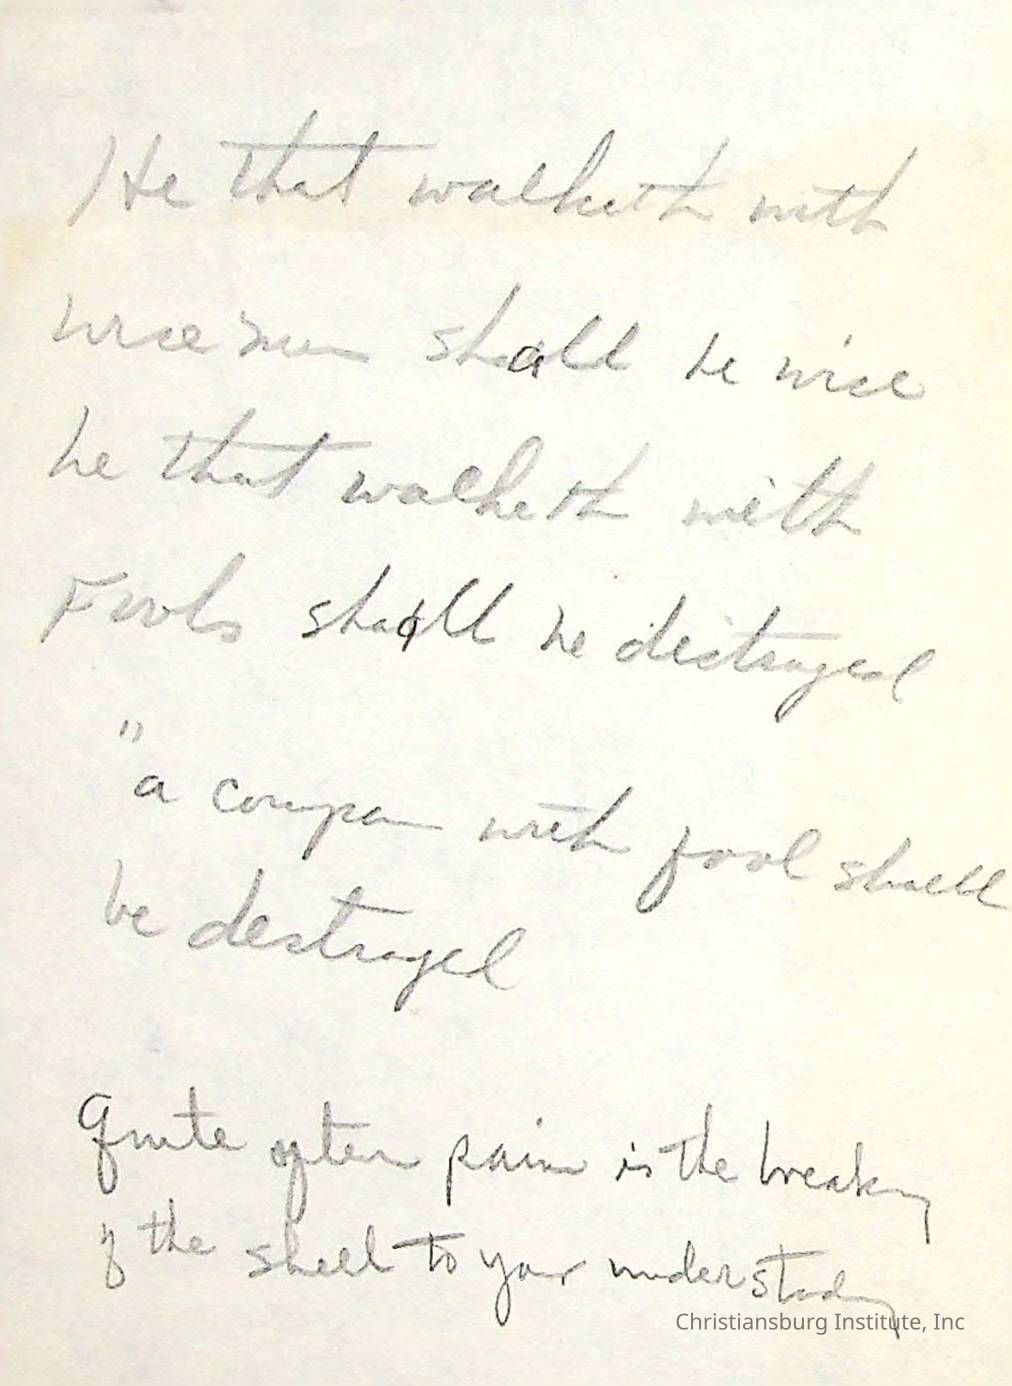 He that walketh with
wise men shall be wise
he that walketh with
Fools shall be destroyed
"a compan with fool shall
be destroyed
Quite often pain is the breaking
of the shell to your understading
Christiansburg Institute, Inc